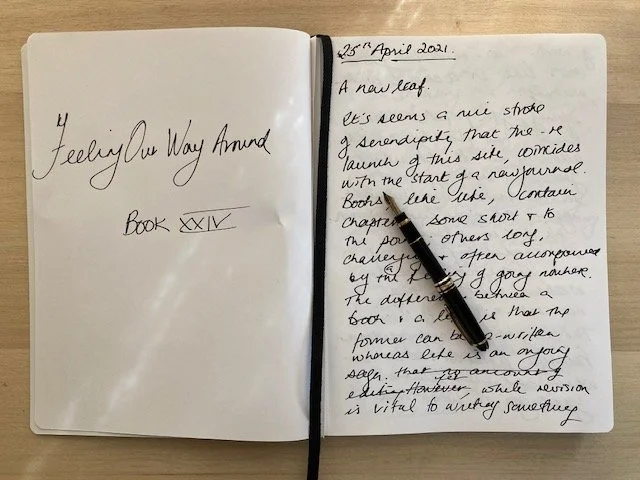 Feeling Our Way Around
Book XXIV
25th April 2021.
A new leaf.
It's seems a nice stroke
of serendipity that the -re
launch of this site, coincides
with the start of a new journal.
Books like life, contain
chapters, some short & to
the point, others long,
challenging & often accompanied
by the feeling of going nowhere.
The difference between a
book & a life is that the
former can be re-written
whereas life is an ongoing
saga, that no amount of
editing However, while revision
is vital to writing something